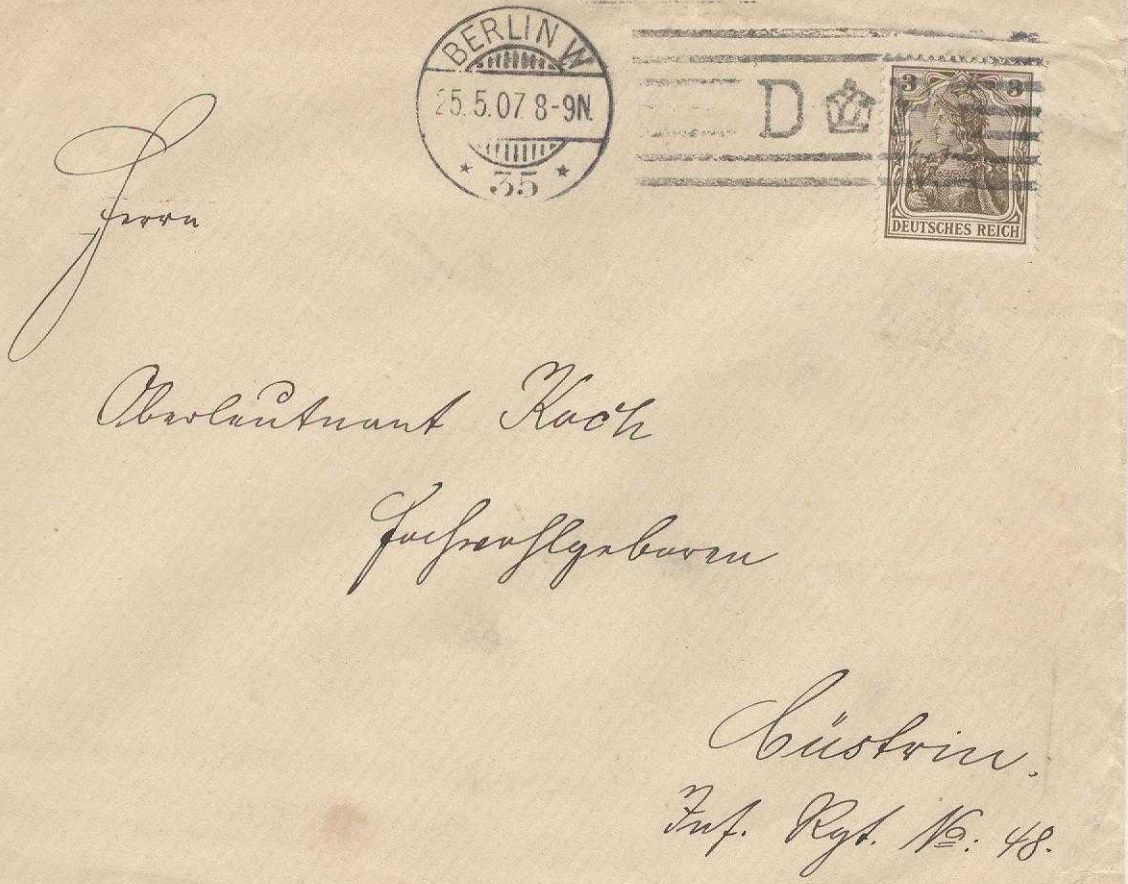 BERLIN W
25.5.07. 8-9N.
* 35 *
D
3 3
DEUTSCHES REICH
Herrn
Oberleutnant Koch
Hochwohlgeboren
Cüstrin.
Inf. Rgt. No: 48.